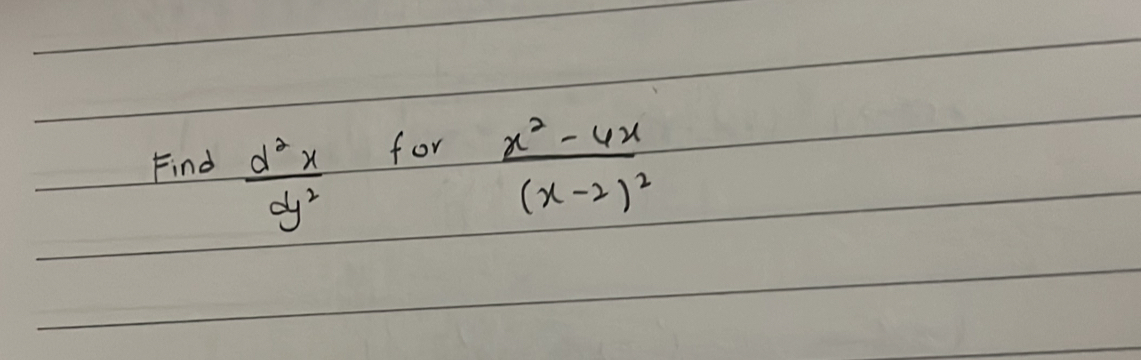 Find d²x/dy² for x² - 4x/(x-2)²